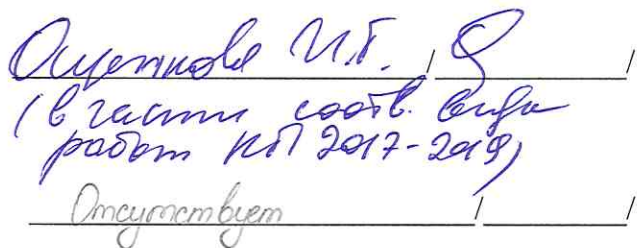 Ощепкова И.Г. / /
(в части соотв. вида
работ КП 2017-2019)
Отсутствует / /